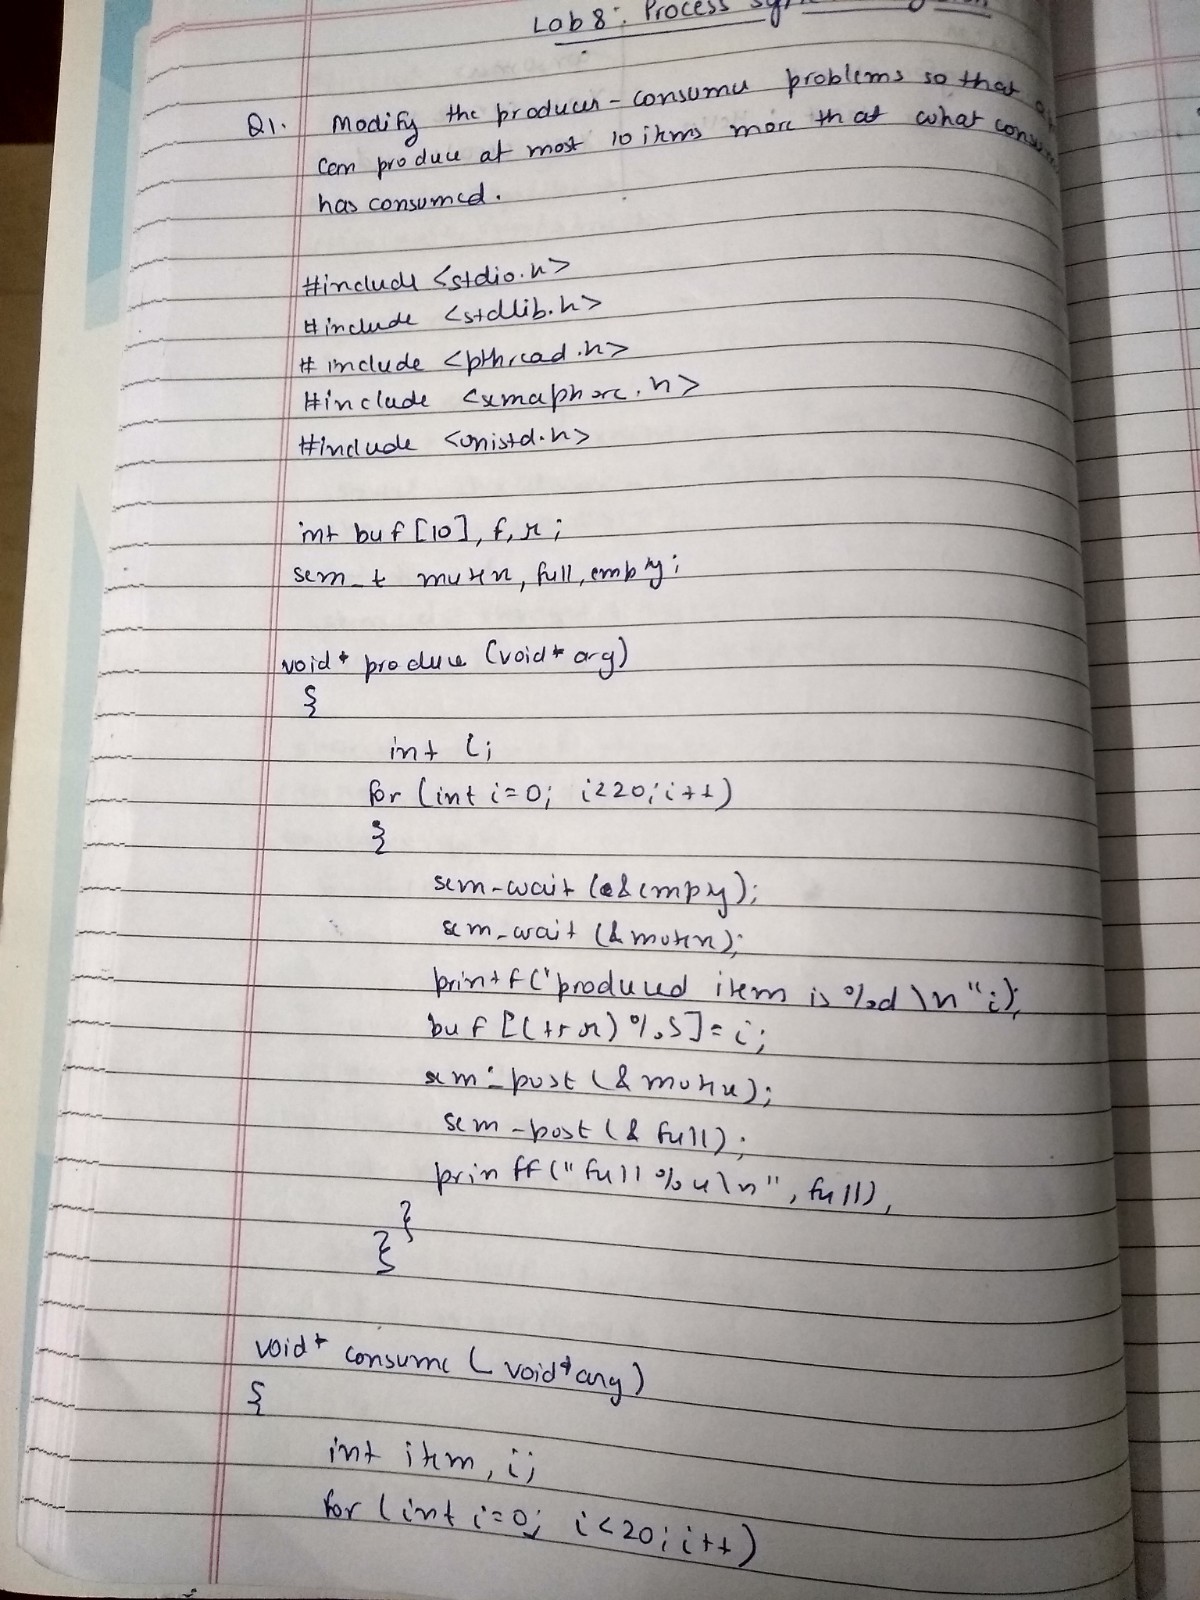 Lab 8: Process
Q1. Modify the producer-consumer problems so that
can produce at most 10 items more that what
has consumed.
#include <stdio.h>
#include <stdlib.h>
# include <pthread.h>
#include <semaphore.h>
#include <unistd.h>
int buf[10], f, r;
sem_t mutex, full, empty;
void* produce (void* arg)
{
int i;
for (int i=0; i<20; i++)
{
sem-wait (&empy);
sem-wait (&mutex);
printf("produced item is %d \n" i);
buf [(++r) %5] = i;
sem-post (&mutex);
sem-post (& full);
printf ("full %u\n", full),
}
}
void* consume ( void* arg)
{
int item, i;
for (int i=0; i<20; i++)